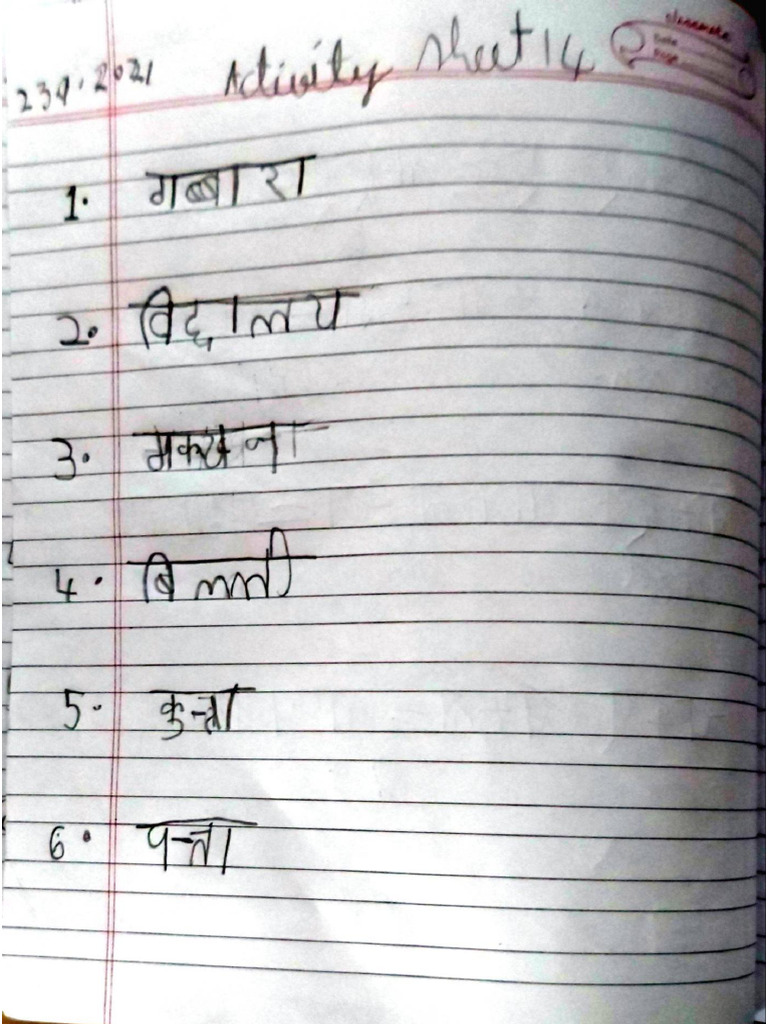 classmate
Date
Page
239.2021 Activity Sheet 14
1. गब्बारा
2. विद्दालय
3. मक्खना
4. बिल्ली
5. कुत्ता
6. पत्ता